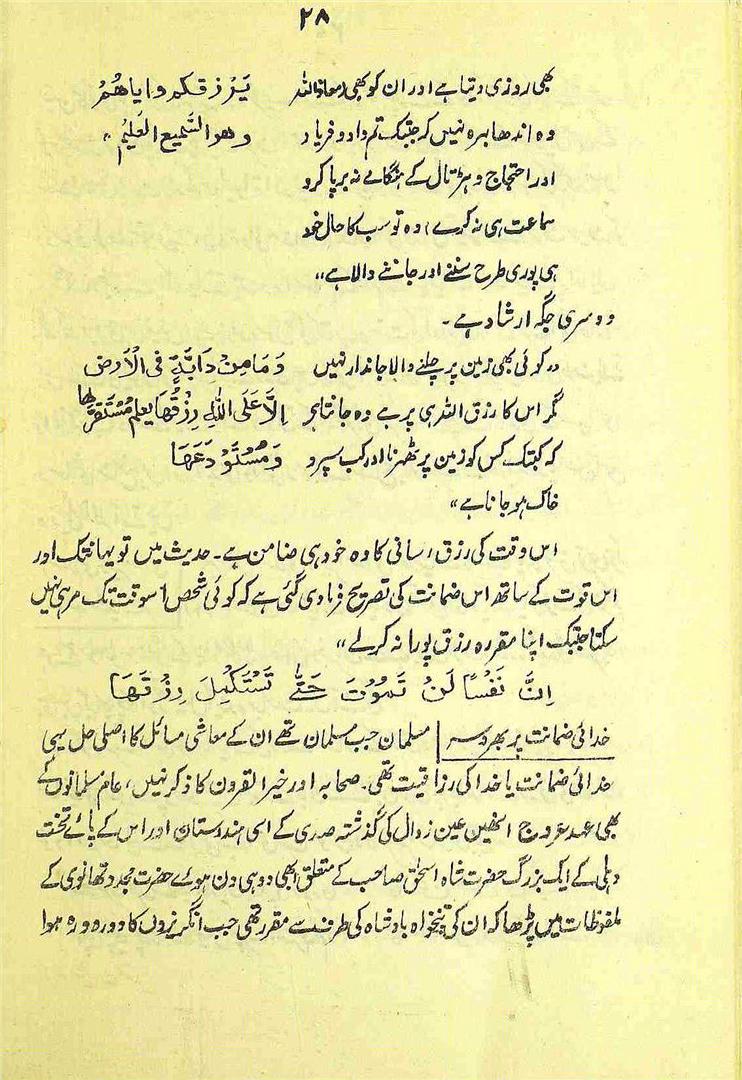 ۲۸
بھی روزی دیتا ہے اور ان کو بھی (معاذ اللہ یَرزقکم وایاھُمْ
وہ اندھا بہرہ نہیں کہ جبتک تم داد و فریاد وھو السَّمیع العَلِیْم"
اور احتجاج و ہڑتال کے ہنگامے نہ برپا کرو
سماعت ہی نہ کرے) وہ تو سب کا حال خود
ہی پوری طرح سننے اور جاننے والا ہے"
دوسری جگہ ارشاد ہے۔
"کوئی بھی زمین پر چلنے والا جاندار نہیں وَمَا مِنْ دَابَّةٍ فی الْاَرْض
مگر اس کا رزق اللہ ہی پر ہے وہ جانتا ہے اِلاَّ عَلَی اللہِ رِزْقُھَا یعلم مُسْتَقَرَّھَا
کہ کبتک کس کو زمین پر ٹھہرنا اور کب سپرد وَمُسْتَوْدَعَھَا
خاک ہو جانا ہے"
اس وقت کی رزق رسانی کا وہ خود ہی ضامن ہے۔ حدیث میں تو یہانتک اور
اس قوت کے ساتھ اس ضمانت کی تصریح فرما دی گئی ہے کہ کوئی شخص اسوقت تک مر ہی نہیں
سکتا جبتک اپنا مقررہ رزق پورا نہ کر لے"
اِنَّ نَفْسًا لَنْ تَمُوْتَ حَتّٰی تَسْتَکْمِلَ رِزْقَھَا
خدائی ضمانت پر بھروسہ | مسلمان جب مسلمان تھے ان کے معاشی مسائل کا اصلی حل یہی
خدائی ضمانت یا خدا کی رزاقیت تھی۔ صحابہ اور خیر القرون کا ذکر نہیں، عام مسلمانوں کے
بھی عہد عروج انھیں عین زوال کی گذشتہ صدی کے اسی ہندوستان اور اس کے پائے تخت
دہلی کے ایک بزرگ حضرت شاہ اسحٰق صاحب کے متعلق ابھی دو ہی دن ہوئے حضرت مجدد تھانوی کے
ملفوظات میں پڑھا کہ ان کی تنخواہ بادشاہ کی طرف سے مقرر تھی جب انگریزوں کا دور دورہ ہوا